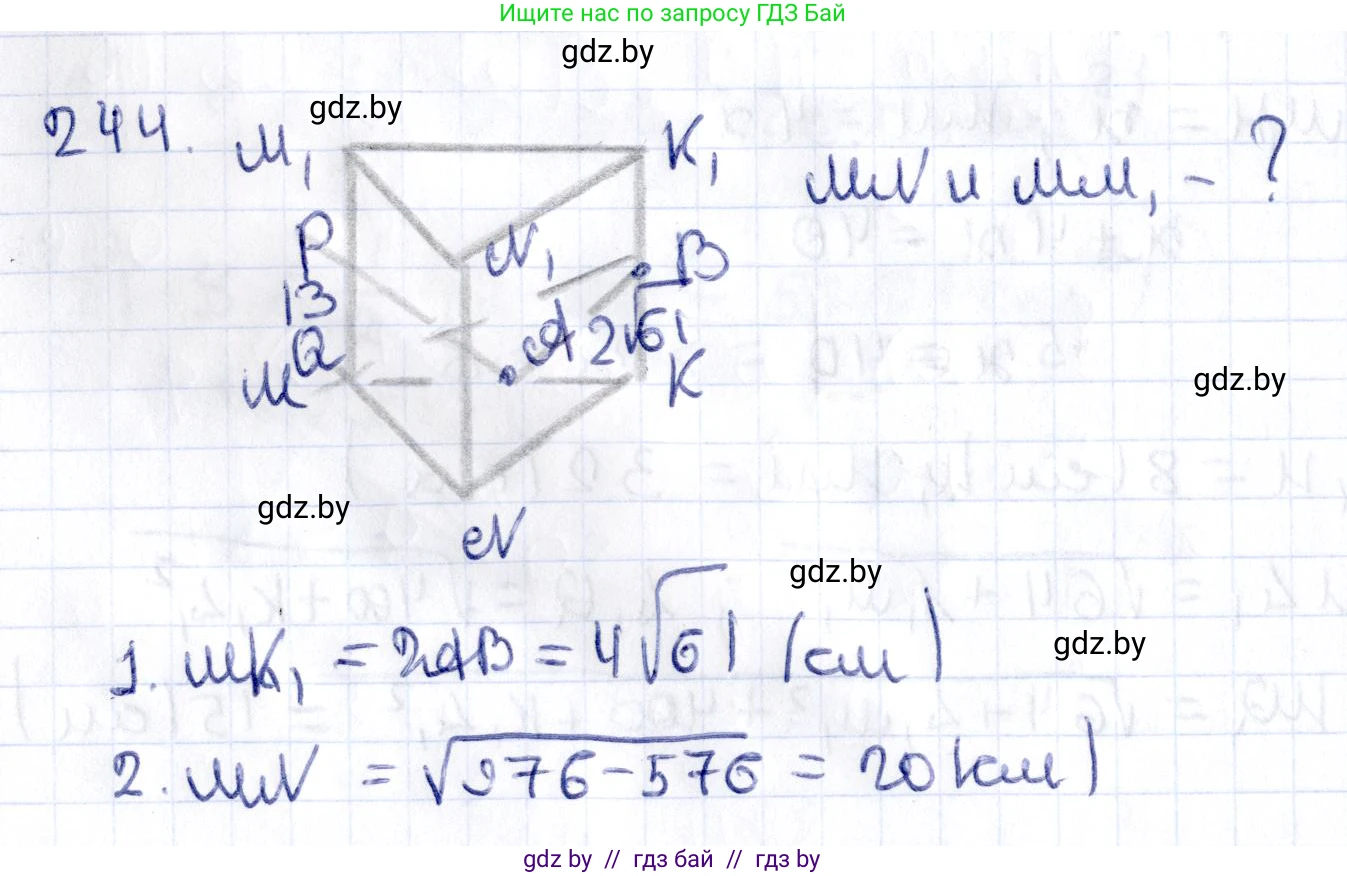 Ищите нас по запросу ГДЗ Бай
gdz.by
gdz.by
244. M₁ K₁ MN и MM₁ - ?
P N₁ B
13 A 2√61
Q
M K
gdz.by
gdz.by
N
gdz.by
gdz.by
1. MK₁ = 2AB = 4√61 (см)
2. MN = √976-576 = 20 (см)
gdz.by // гдз бай // гдз by